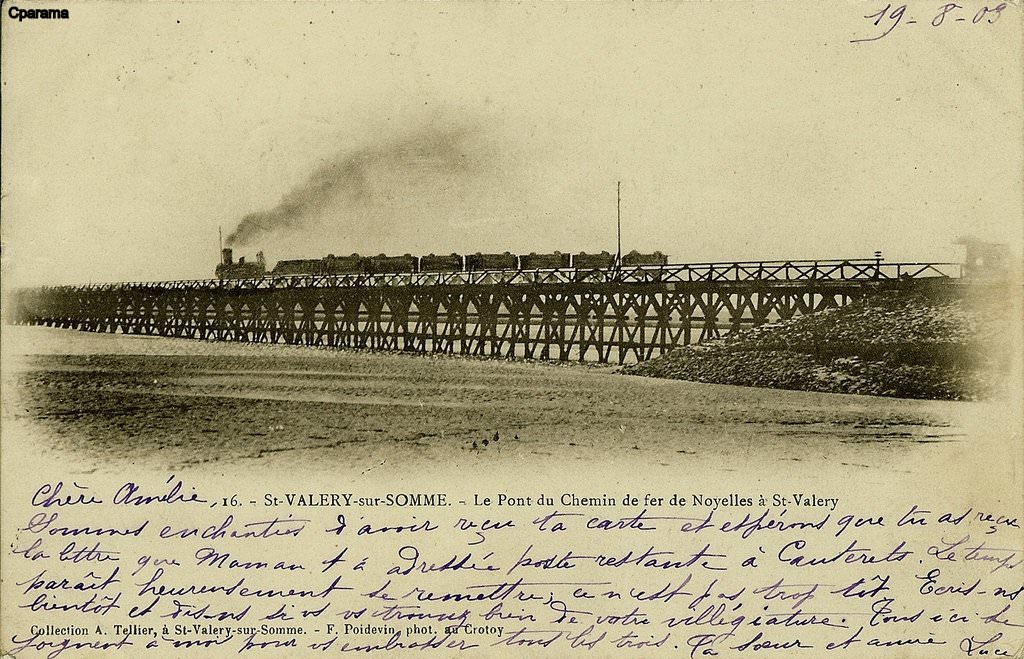 Cparama
19-8-03
Chère Amélie,
16. - St-VALERY-sur-SOMME. - Le Pont du Chemin de fer de Noyelles à St-Valery
Sommes enchantés d'avoir reçu ta carte et espérons que tu as reçu
la lettre que Maman t'a adressée poste restante à Cauterets. Le temps
paraît heureusement se remettre; ce n'est pas trop tôt. Ecris-ns
bientôt et dis-ns si vs vs trouvez bien de votre villégiature. Tous ici se
Collection A. Tellier, à St-Valery-sur-Somme. - F. Poidevin, phot. au Crotoy
joignent à moi pour vs embrasser tous les trois. Ta sœur et amie Luce